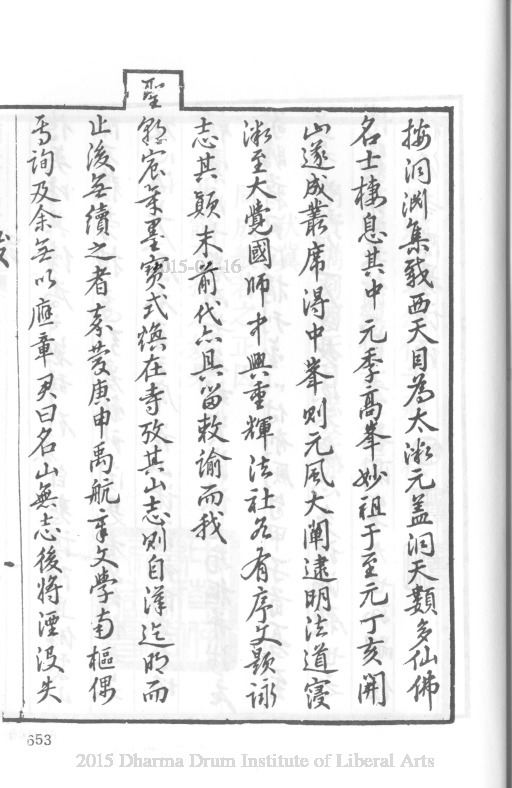 按洞淵集載西天目為太微元蓋洞天類多仙佛
名士棲息其中元季高峯妙祖于至元丁亥開
山遂成叢席得中峯則元風大闡逮明法道寖
微至大覺國師中興重輝法社各有序文題詠
志其顛末前代亦具留敕諭而我
聖朝宸章墨寶式煥在寺攷其山志則自漢迄明而
止後無續之者嘉慶庚申禹航章文學南樞偶
焉詢及余無以應章君曰名山無志後將湮沒失
653
2015 Dharma Drum Institute of Liberal Arts